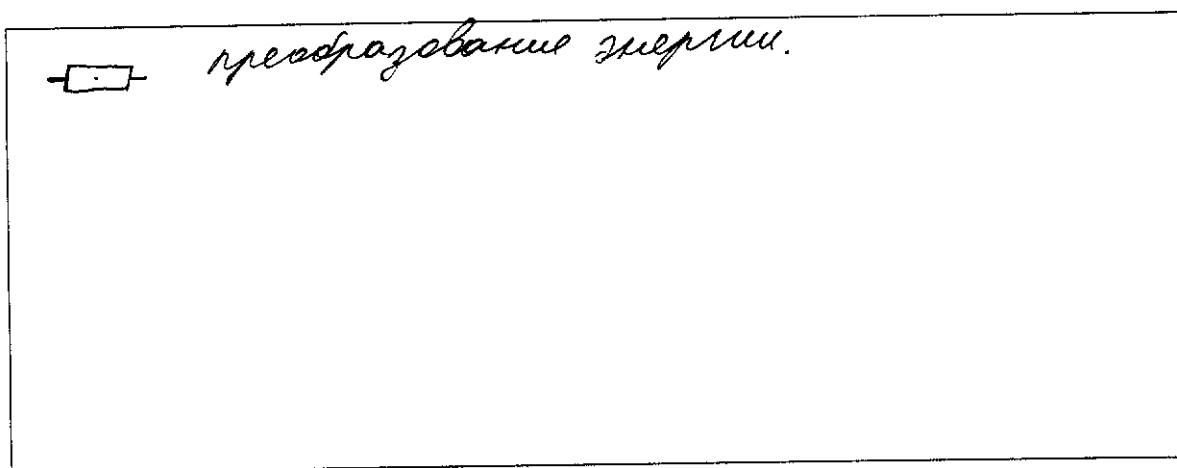 преобразование энергии.